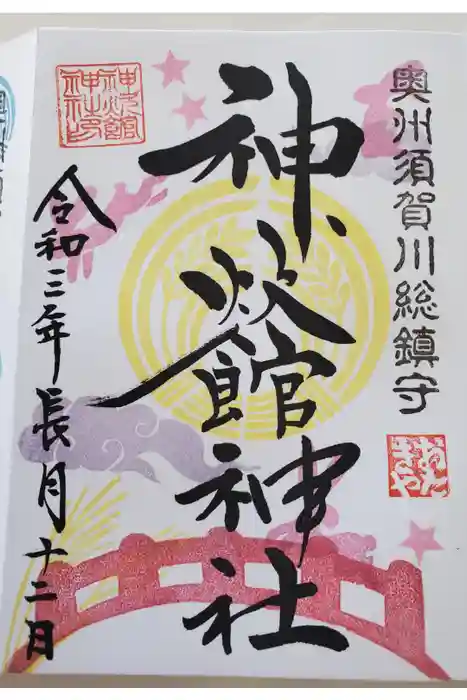 奥州須賀川総鎮守
神炊館神社
令和三年長月十二日
神炊館
神社印
おたきや